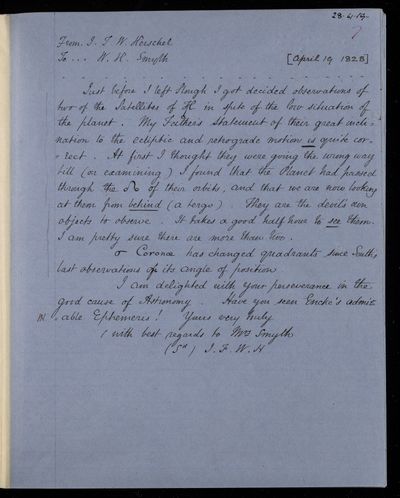 28-4-19
From. J. F. W. Herschel
To... W. H. Smyth [April 19 1828]
Just before I left Slough I got decided observations of
two of the Satellites of ♅ in spite of the low situation of
the planet. My Father's statement of their great incli-
nation to the ecliptic and retrograde motion is quite cor-
-rect. At first I thought they were going the wrong way
till (on examining) I found that the Planet had passed
through the ☊ of their orbits, and that we are now looking
at them from behind (a tergo). They are the devil's own
objects to observe. It takes a good half hour to see them.
I am pretty sure there are more than two.
σ Coronæ has changed quadrants since South's
last observations of its angle of position
I am delighted with your perseverance in the
good cause of Astronomy. Have you seen Encke's admir-
-able Ephemeris! Yours very truly
(with best regards to Mrs Smyth
(Sd) J. F. W. H